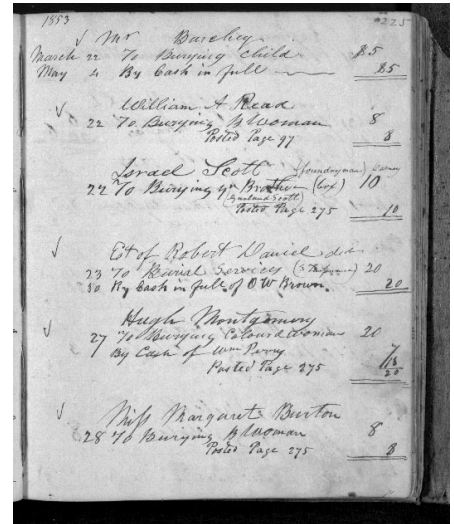 1853
225
Mr Barckey
March 22 To Burying Child $5
May 4 By Cash in full 5
William A Read
22 To Burying B Woman 8
Posted Page 97 8
Israel Scott (foundryman)
22 To Burying yr Brother (box) 10
(Garland Scott)
Posted Page 275 10
Est of Robert Daniel decd
23 To Burial Services 20
30 By Cash in full of O W Brown. 20
Hugh Montgomery
27 To Burying Coloured Woman 20
By Cash of Wm Perry 7
Posted Page 275 13
20
Miss Margaret Burton
28 To Burying B Woman 8
Posted Page 275 8